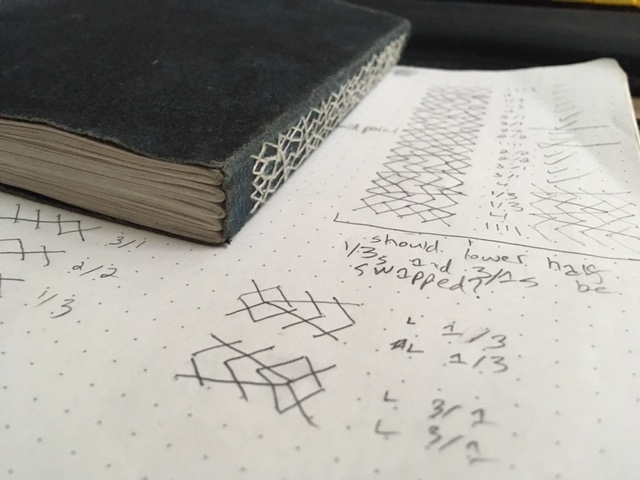 should lower half
1/3s and 3/1s be
swapped?
3/1
2/2
1/3
L 1/3
L 1/3
L 3/1
L 3/1